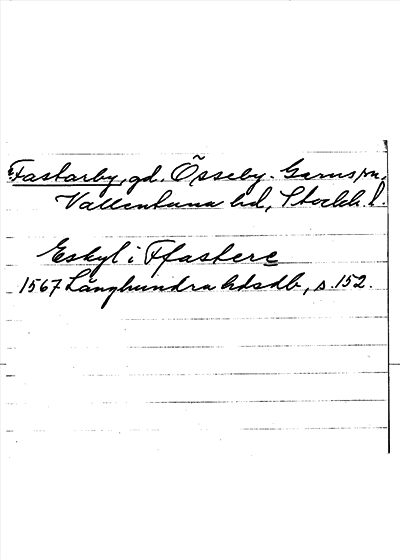 Fastarby, gd. Össeby-Garns sn,
Vallentuna hd, Stockh. l.
Eskyl i Ffastere
1567 Långhundra hdsdb, s. 152.